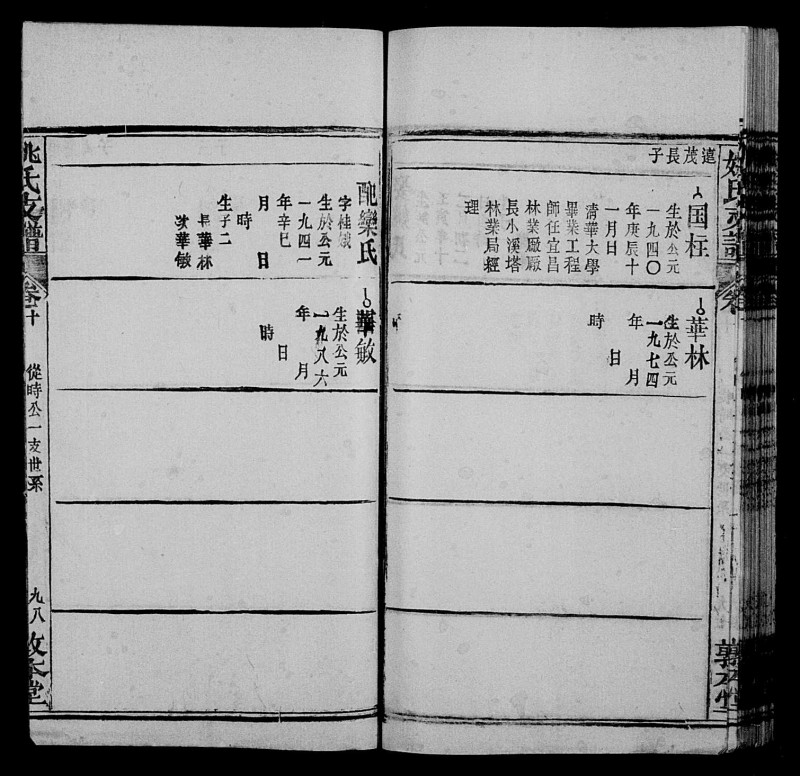 遠茂長子
国柱
生於公元
一九四〇
年庚辰十
一月日
清華大學
畢業工程
師任宜昌
林業厰厰
長小溪塔
林業局經
理
華林
生於公元
一九七四
年　月
日
時
配欒氏
字桂娥
生於公元
一九四一
年辛巳
月　日
時
生子二
長華林
次華敏
華敏
生於公元
一九八六
年　月
日
時
姚氏支譜
卷十
從時公一支世系
九八
敦本堂